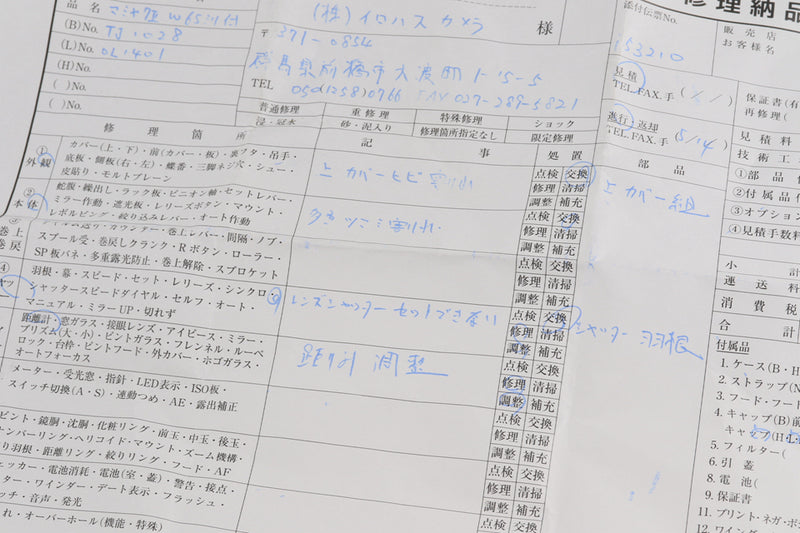 修理納品
品名 マミヤ7Ⅱ W65ツ付
(株)イロハスカメラ 様
添付伝票No. 153210
販売店
お客様名
(B)No. TJ1028
(L)No. OL1401
(H)No.
( )No.
( )No.
〒 371-0854
群馬県前橋市大渡町1-15-5
TEL 050(1258)0766 FAX 027-289-5821
見積
TEL.FAX.手 ( / )
進行 返却
TEL.FAX.手 (5/14)
保証書(有
再修理(
見積料
技術工
①部品
②付属品
③オプション
④見積手数料
小計
運送料
消費税
合計
普通修理 重修理 特殊修理 ショック
浸・冠水 砂・泥入り 修理箇所指定なし 限定修理
修理箇所 記事 処置 部品
①外観
カバー(上・下)・前(カバー・板)・裏ブタ・吊手・
底板・側板(右・左)・蝶番・三脚ネジ穴・シュー・
皮貼り・モルトプレーン
上カバーヒビ割れ
点検 交換
修理 清掃
調整 補充
上カバー組
②本体
蛇腹・繰出し・ラック板・ピニオン軸・セットレバー・
ミラー作動・遮光板・レリーズボタン・マウント・
レボルビング・絞り込みレバー・オート作動
点検 交換
修理 清掃
調整 補充
巻上
巻戻
フィルム送り・カウンター・巻上レバー・間隔・ノブ・
スプール受・巻戻しクランク・Rボタン・ローラー・
SP板バネ・多重露光防止・巻上解除・スプロケット
点検 交換
修理 清掃
調整 補充
④
羽根・幕・スピード・セット・レリーズ・シンクロ
シャッタースピードダイヤル・セルフ・オート・
マニュアル・ミラーUP・切れず
レンズシャッターセットできない
点検 交換
修理 清掃
調整 補充
シャッター羽根
距離計・窓ガラス・接眼レンズ・アイピース・ミラー・
プリズム(大・小)・ピントガラス・フレンネル・ルーペ
ロック・台枠・ピントフード・外カバー・ホゴガラス・
オートフォーカス
距り計 調整
点検 交換
修理 清掃
調整 補充
メーター・受光窓・指針・LED表示・ISO板・
スイッチ切換(A・S)・連動つめ・AE・露出補正
点検 交換
修理 清掃
調整 補充
ピント・鏡胴・沈胴・化粧リング・前玉・中玉・後玉・
ヘリコイド・マウント・ズーム機構・
り羽根・距離リング・絞りリング・フード・AF
点検 交換
修理 清掃
調整 補充
電池消耗・電池(室・蓋)・警告・接点・
ター・ワインダー・デート表示・フラッシュ・
ッチ・音声・発光
点検 交換
修理 清掃
調整 補充
れ・オーバーホール(機能・特殊)
点検 交換
付属品
1.ケース(B・H
2.ストラップ(N
3.フード・フー
4.キャップ(B)前
キャップ(H・L
5.フィルター(
6.引蓋
8.電池(
9.保証書
11.プリント・ネガ・ポ
12.ワインダ